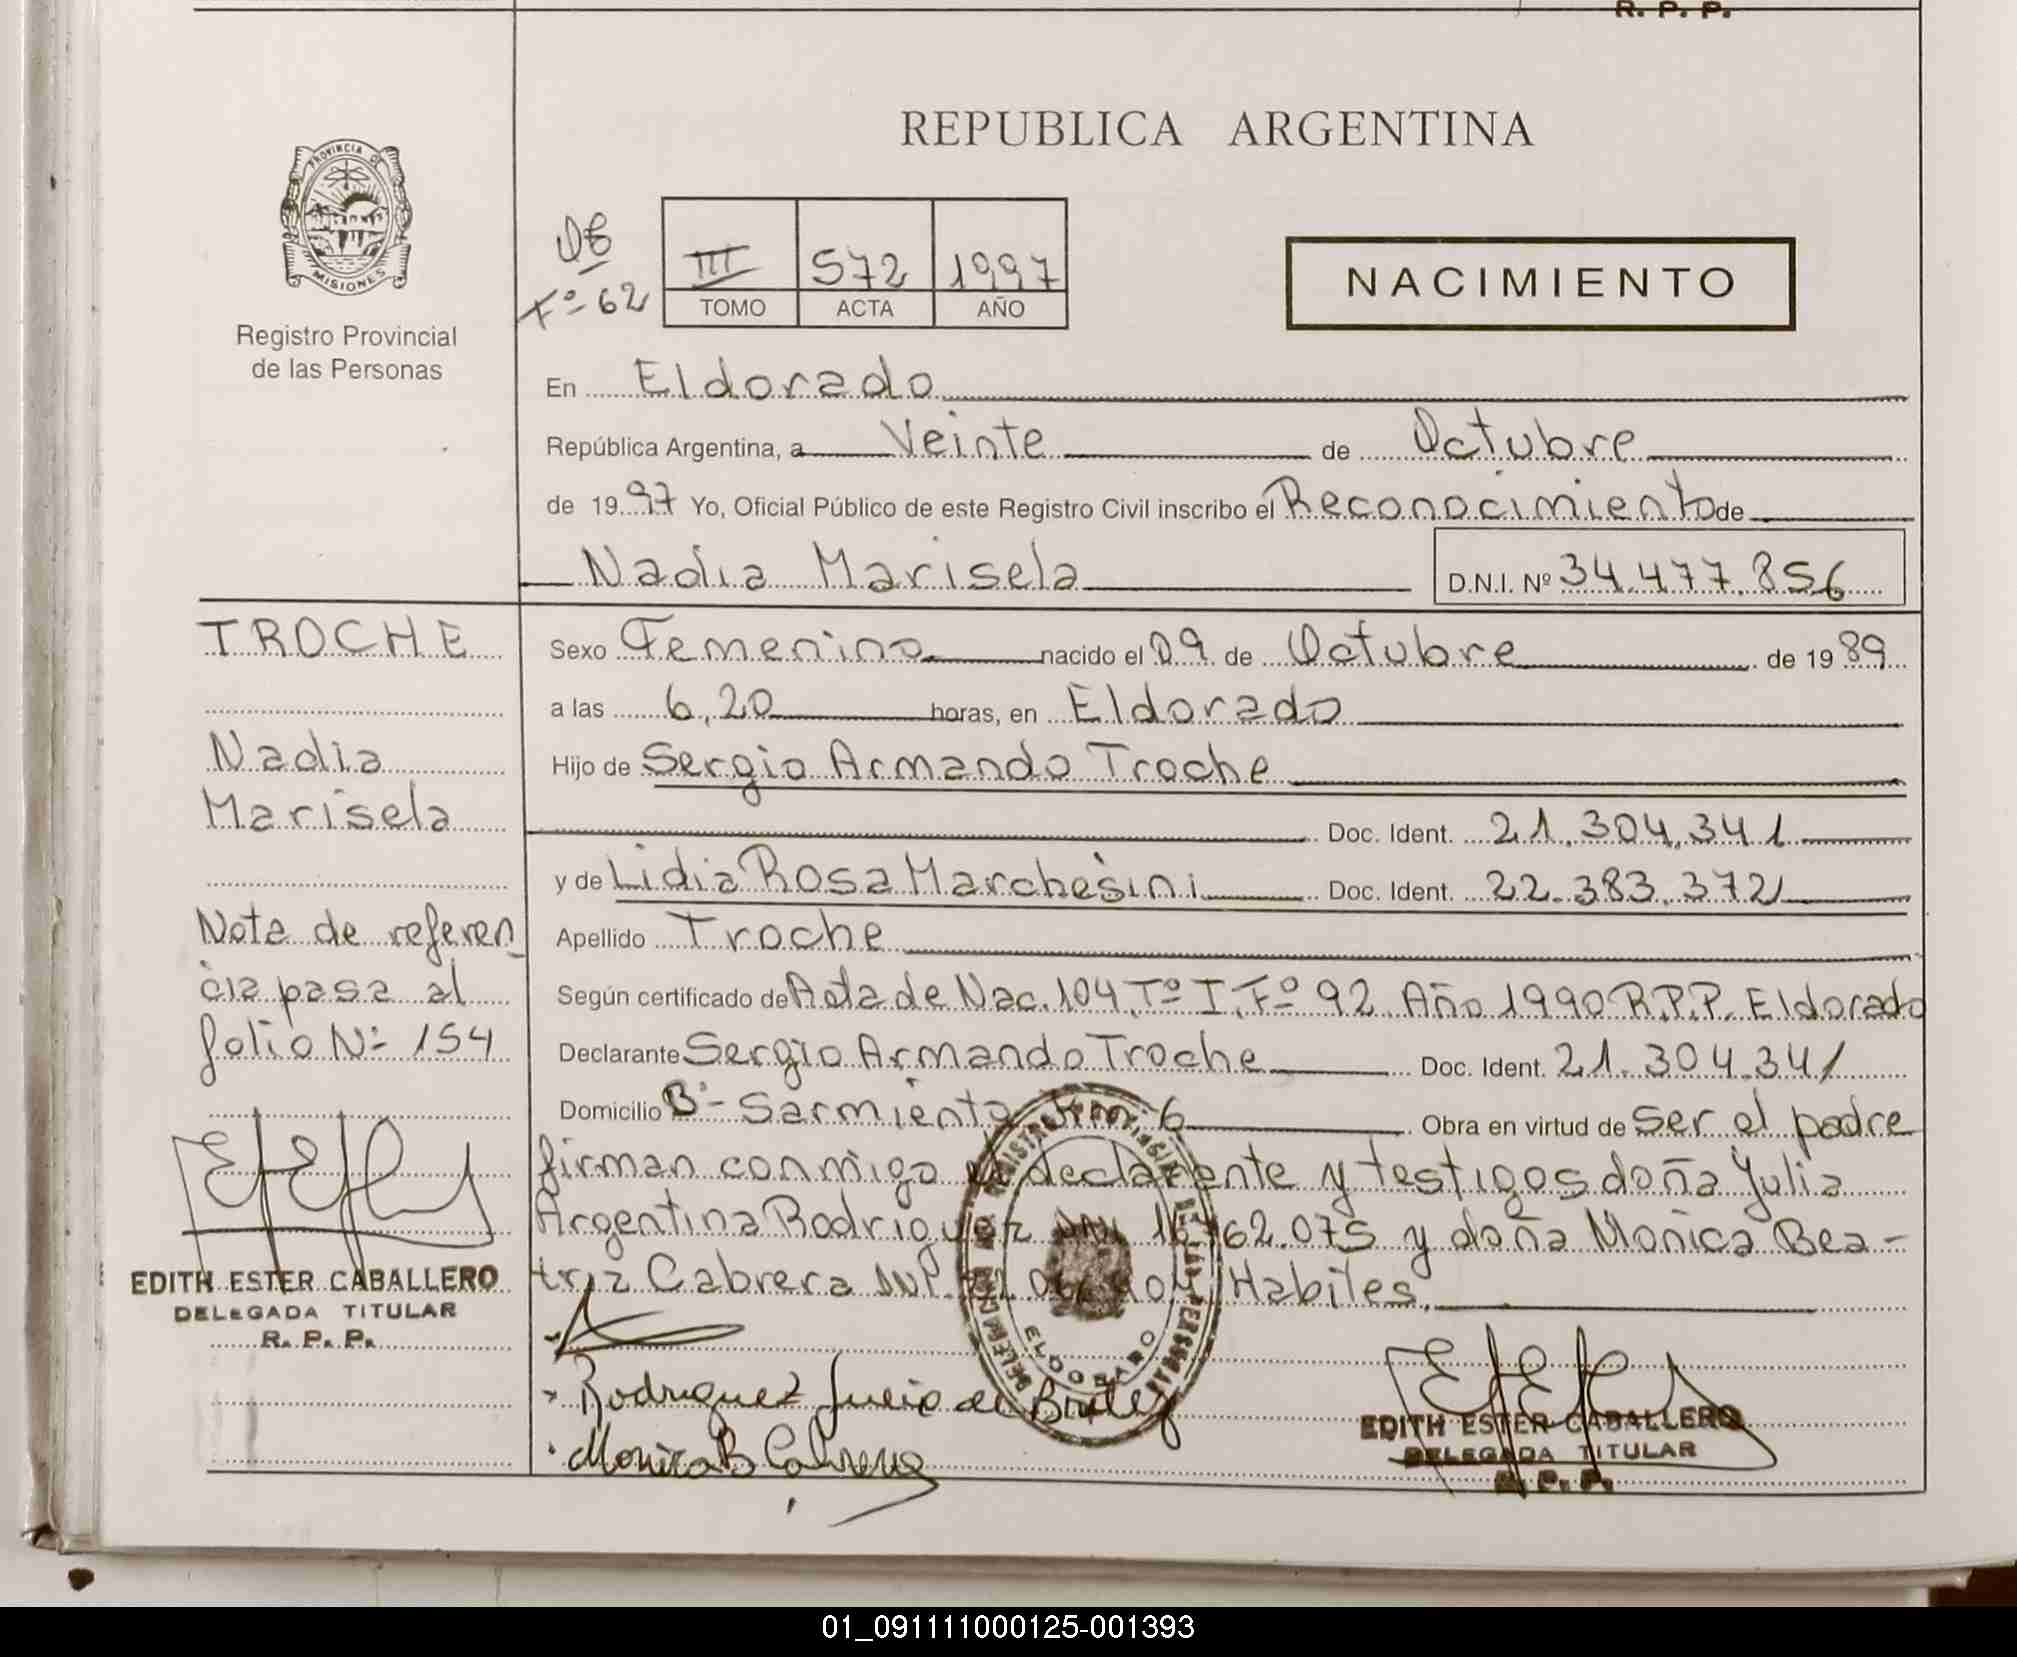 R. P. P.
REPUBLICA ARGENTINA
PROVINCIA DE
MISIONES
Registro Provincial
de las Personas
Fº 62
III 572 1997
TOMO ACTA AÑO
NACIMIENTO
En Eldorado
República Argentina, a Veinte de Octubre
de 1997 Yo, Oficial Público de este Registro Civil inscribo el Reconocimiento de
Nadia Marisela D.N.I. Nº 34.477.856
TROCHE
Nadia
Marisela
Nota de referen
cia pasa al
folio Nº 154
EDITH ESTER CABALLERO
DELEGADA TITULAR
R. P. P.
Sexo Femenino nacido el 09 de Octubre de 1989
a las 6,20 horas, en Eldorado
Hijo de Sergio Armando Troche
Doc. Ident. 21.304.341
y de Lidia Rosa Marchesini Doc. Ident. 22.383.372
Apellido Troche
Según certificado de Acta de Nac. 104, Tº I, Fº 92 Año 1990 R.P.P. Eldorado
Declarante Sergio Armando Troche Doc. Ident. 21.304.341
Domicilio Bº Sarmiento Km 6 Obra en virtud de ser el padre
firman conmigo el declarante y testigos doña Julia
Argentina Rodriguez DNI y doña Monica Bea-
triz Cabrera Habiles.
ELDORADO
Rodriguez
Monica B Cabrera
EDITH ESTER CABALLERO
DELEGADA TITULAR
R. P. P.
01_091111000125-001393